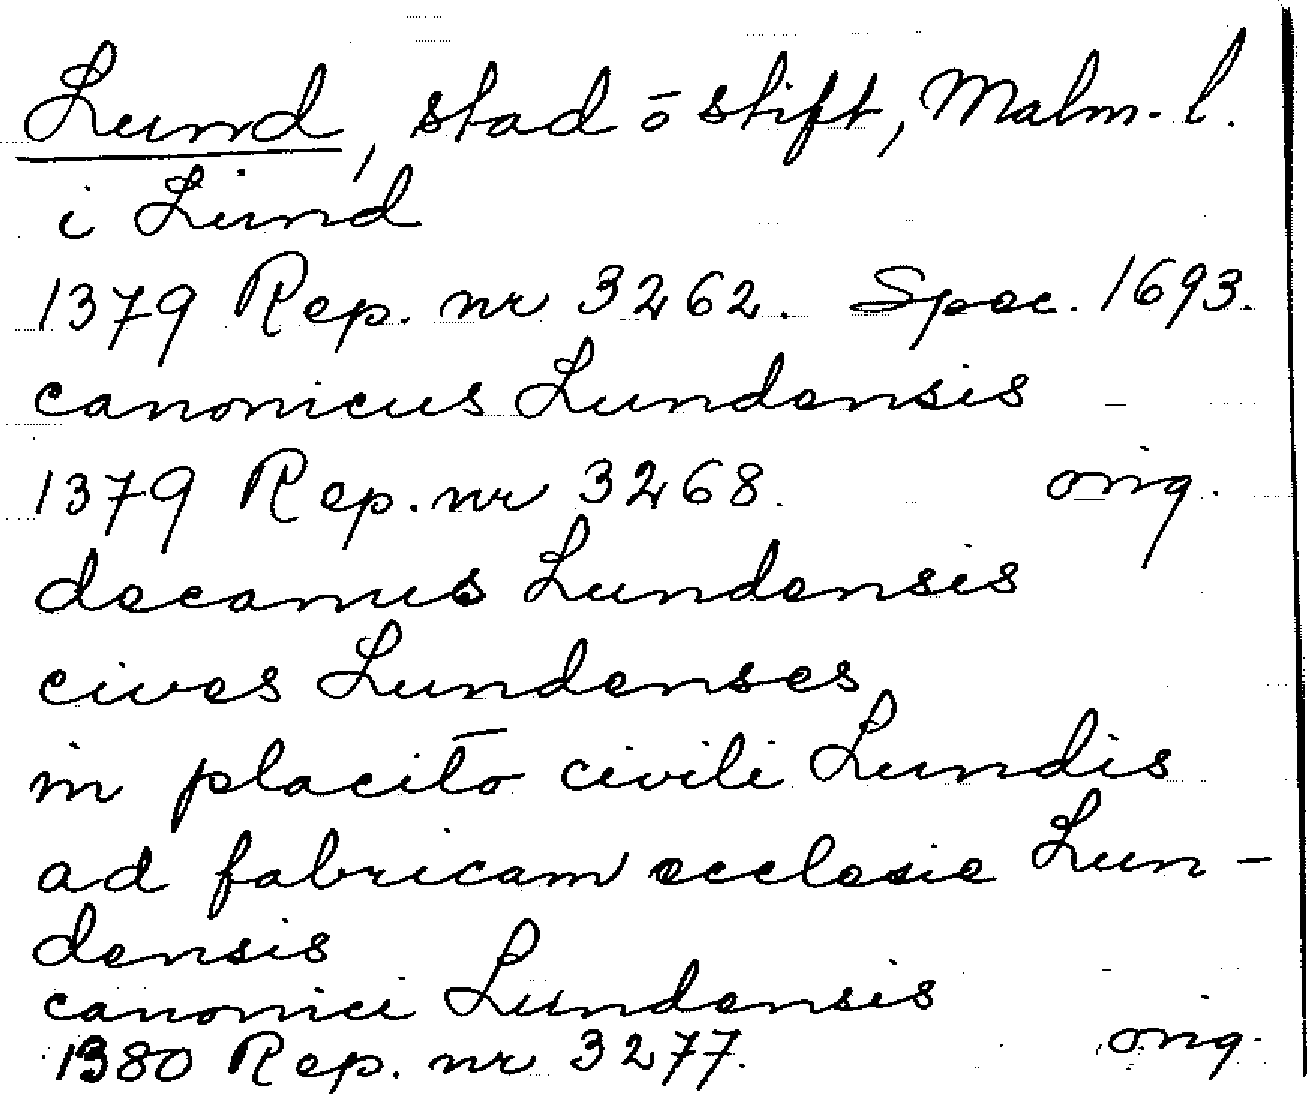 Lund, stad o stift, Malm. l.
i Lund
1379 Rep. nr 3262. Spec. 1693.
canonicus Lundensis
1379 Rep. nr 3268. orig.
decanus Lundensis
cives Lundenses
in placito civili Lundis
ad fabricam ecclesie Lun-
densis
canonici Lundensis
1380 Rep. nr 3277. orig.